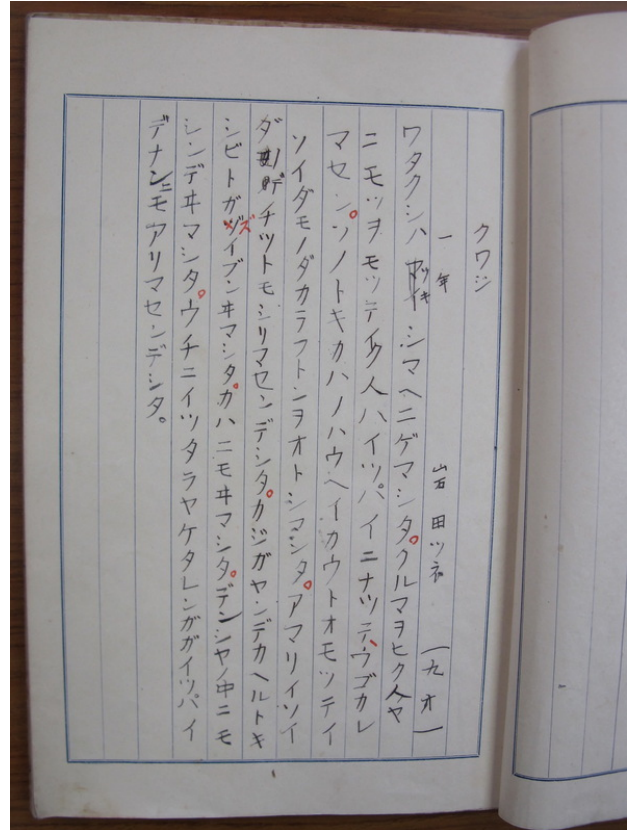 クワジ
一年 岩田ツネ （九才）
ワタクシハ ツキシマヘニゲマシタ。クルマヲヒク人ヤ
ニモツヲモツテイク人ハイツパイニナツテ、ウゴカレ
マセン。ソノトキカハノハウヘイカウトオモツテイ
ソイダモノダカラフトンヲオトシマシタ。アマリイソイ
ダ時チツトモシリマセンデシタ。カジガヤンデカヘルトキ
シビトガズイブンヰマシタ。カハニモヰマシタ。デンシヤノ中ニモ
シンデヰマシタ。ウチニイツタラヤケタレンガガイツパイ
デナンニモアリマセンデシタ。